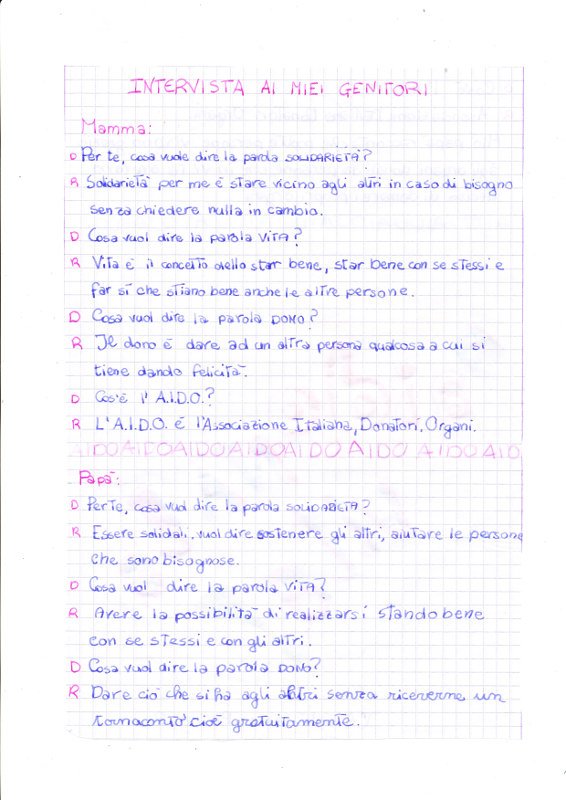 INTERVISTA AI MIEI GENITORI
Mamma:
D Per te, cosa vuole dire la parola SOLIDARIETÀ?
R Solidarietà per me è stare vicino agli altri in caso di bisogno
senza chiedere nulla in cambio.
D Cosa vuol dire la parola VITA?
R Vita è il concetto dello star bene, star bene con se stessi e
far sì che stiano bene anche le altre persone.
D Cosa vuol dire la parola DONO?
R Il dono è dare ad un altra persona qualcosa a cui si
tiene dando felicità.
D Cos'è l'A.I.D.O.?
R L'A.I.D.O. è l'Associazione Italiana, Donatori, Organi.
AIDOAIDOAIDOAIDOAIDO AIDO AIDO AIDO
Papà:
D Per te, cosa vuol dire la parola SOLIDARIETÀ?
R Essere solidali, vuol dire sostenere gli altri, aiutare le persone
che sono bisognose.
D Cosa vuol dire la parola VITA?
R Avere la possibilità di realizzarsi stando bene
con se stessi e con gli altri.
D Cosa vuol dire la parola DONO?
R Dare ciò che si ha agli altri senza riceverne un
tornaconto cioè gratuitamente.